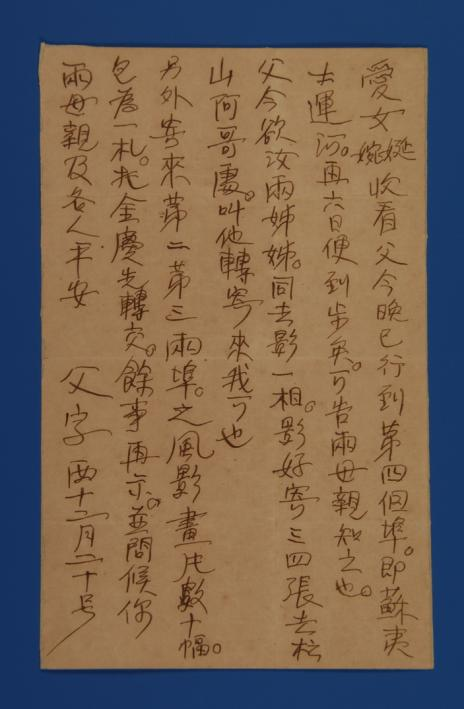 愛女婉嫙收看父今晚已行到第四個埠。即蘇夷
士運河。再六日便到步矣。可告兩母親知之也。
父今欲汝兩姊妹。同去影一相。影好寄三四張去松
山阿哥處。叫他轉寄來我可也
另外寄來第二第三兩埠。之風影畫片數十幅。
包為一札。托金慶先轉交。餘事再示。並問候你
兩母親及各人平安
父字 西十二月二十号